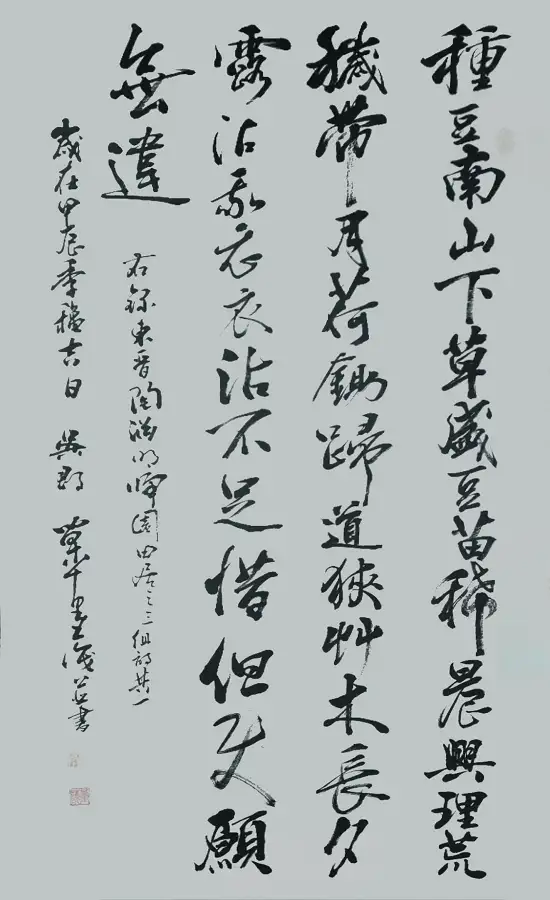 種豆南山下草盛豆苗稀晨興理荒
穢帶月荷鋤歸道狹艸木長夕
露沾我衣衣沾不足惜但使願
無違
右錄東晉陶淵明歸園田居之三組詩其一
歲在甲辰季穐吉日 吳郡 書